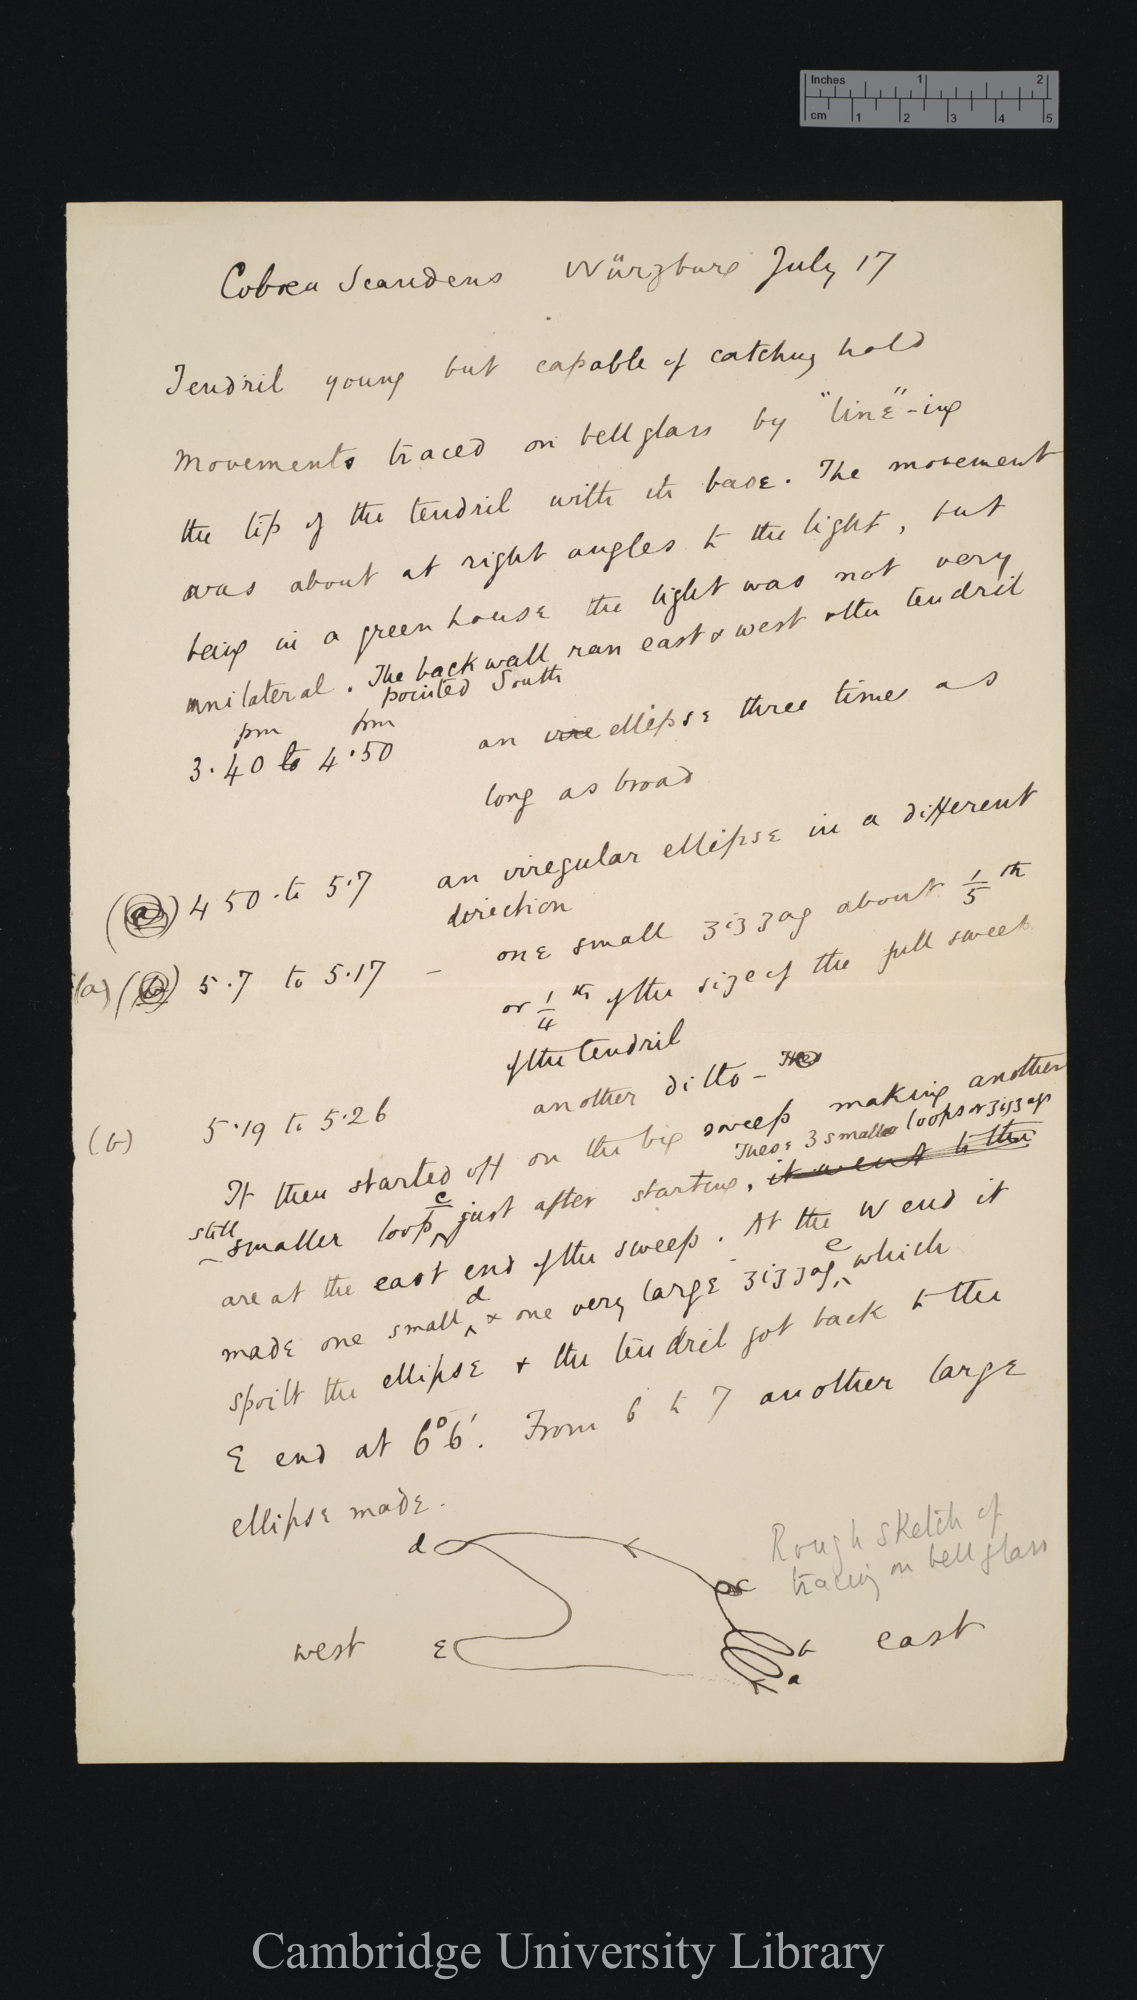 Inches 1 2
cm 1 2 3 4 5
Cobœa Scandens Würzburg July 17
Tendril young but capable of catching hold
Movements traced on bellglass by "line"-ing
the tip of the tendril with its base. The movement
was about at right angles to the light, but
being in a green house the light was not very
unilateral. The back wall ran east & west & the tendril
pointed South
pm pm
3.40 to 4.50 an irre ellipse three times as
long as broad
(a) 4 50 to 5.7 an irregular ellipse in a different
direction
(a) (b) 5.7 to 5.17 – one small zigzag about 1/5 th
or 1/4 th of the size of the full sweep
of the tendril
(b) 5.19 to 5.26 another ditto – The
It then started off on the big sweep making another
These 3 small loops or zigzags
still smaller loop c just after starting, it went to the
are at the east end of the sweep. At the W end it
made one small d & one very large zigzag e which
spoilt the ellipse & the tendril got back to the
E end at 6° 6'. From 6 to 7 another large
ellipse made.
d
Rough sketch of
tracing on bell glass
c
west E b east
a
Cambridge University Library